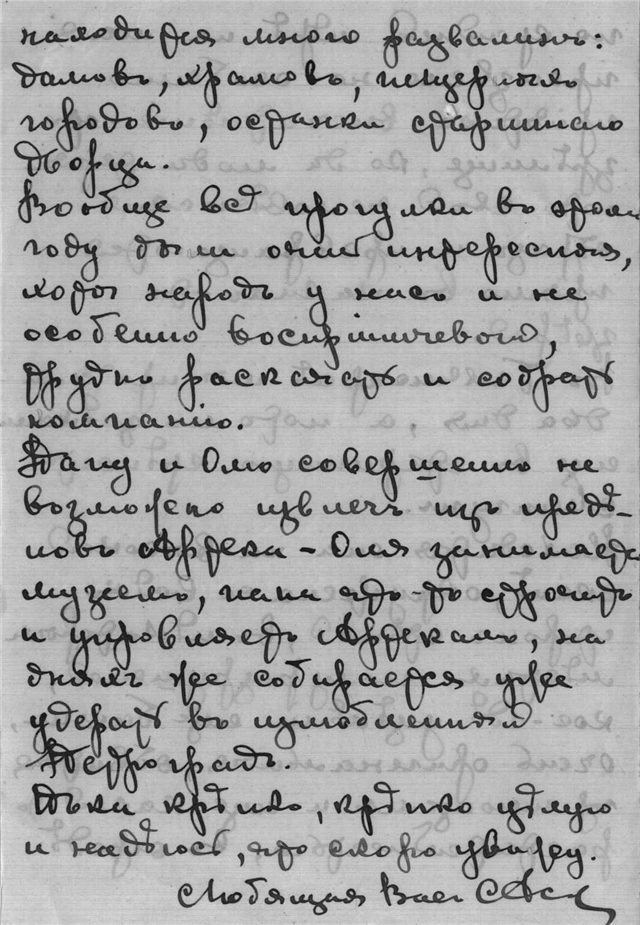 находится много развалинъ:
домовъ, храмовъ, пещерныхъ
городовъ, останки стариннаго
дворца.
Вообще всѣ прогулки въ этомъ
году были очень интересныя,
хотя народъ у насъ и не
особенно воспріимчевый,
трудно раскачать и собрать
компанію.
Папу и Олю совершенно не
возможно извлечь изъ предѣ-
ловъ Артека – Оля занимается
музеемъ, папа что-то строитъ
и управляетъ Артекомъ, на
дняхъ же собирается уже
удерать въ излюбленный
Петроградъ.
крѣпко, крѣпко цѣлую
и надѣюсь, что скоро увижу.
Любящая Васъ